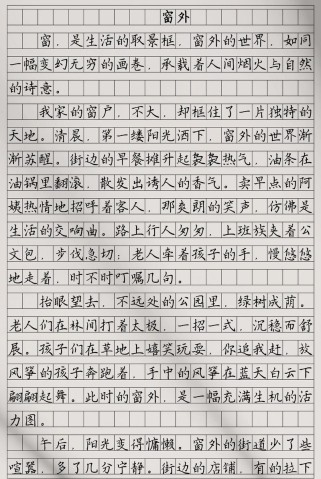 窗外
窗，是生活的取景框，窗外的世界，如同
一幅变幻无穷的画卷，承载着人间烟火与自然
的诗意。
我家的窗户，不大，却框住了一片独特的
天地。清晨，第一缕阳光洒下，窗外的世界渐
渐苏醒。街边的早餐摊升起袅袅热气，油条在
油锅里翻滚，散发出诱人的香气。卖早点的阿
姨热情地招呼着客人，那爽朗的笑声，仿佛是
生活的交响曲。路上行人匆匆，上班族夹着公
文包，步伐急切；老人牵着孩子的手，慢悠悠
地走着，时不时叮嘱几句。
抬眼望去，不远处的公园里，绿树成荫。
老人们在林间打着太极，一招一式，沉稳而舒
展。孩子们在草地上嬉笑玩耍，你追我赶，放
风筝的孩子奔跑着，手中的风筝在蓝天白云下
翩翩起舞。此时的窗外，是一幅充满生机的活
力图。
午后，阳光变得慵懒。窗外的街道少了些
喧嚣，多了几分宁静。街边的店铺，有的拉下